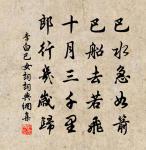 巴水急如箭
巴船去若飛
十月三千里
郎行幾歲歸
李白巴女詞詞典網集